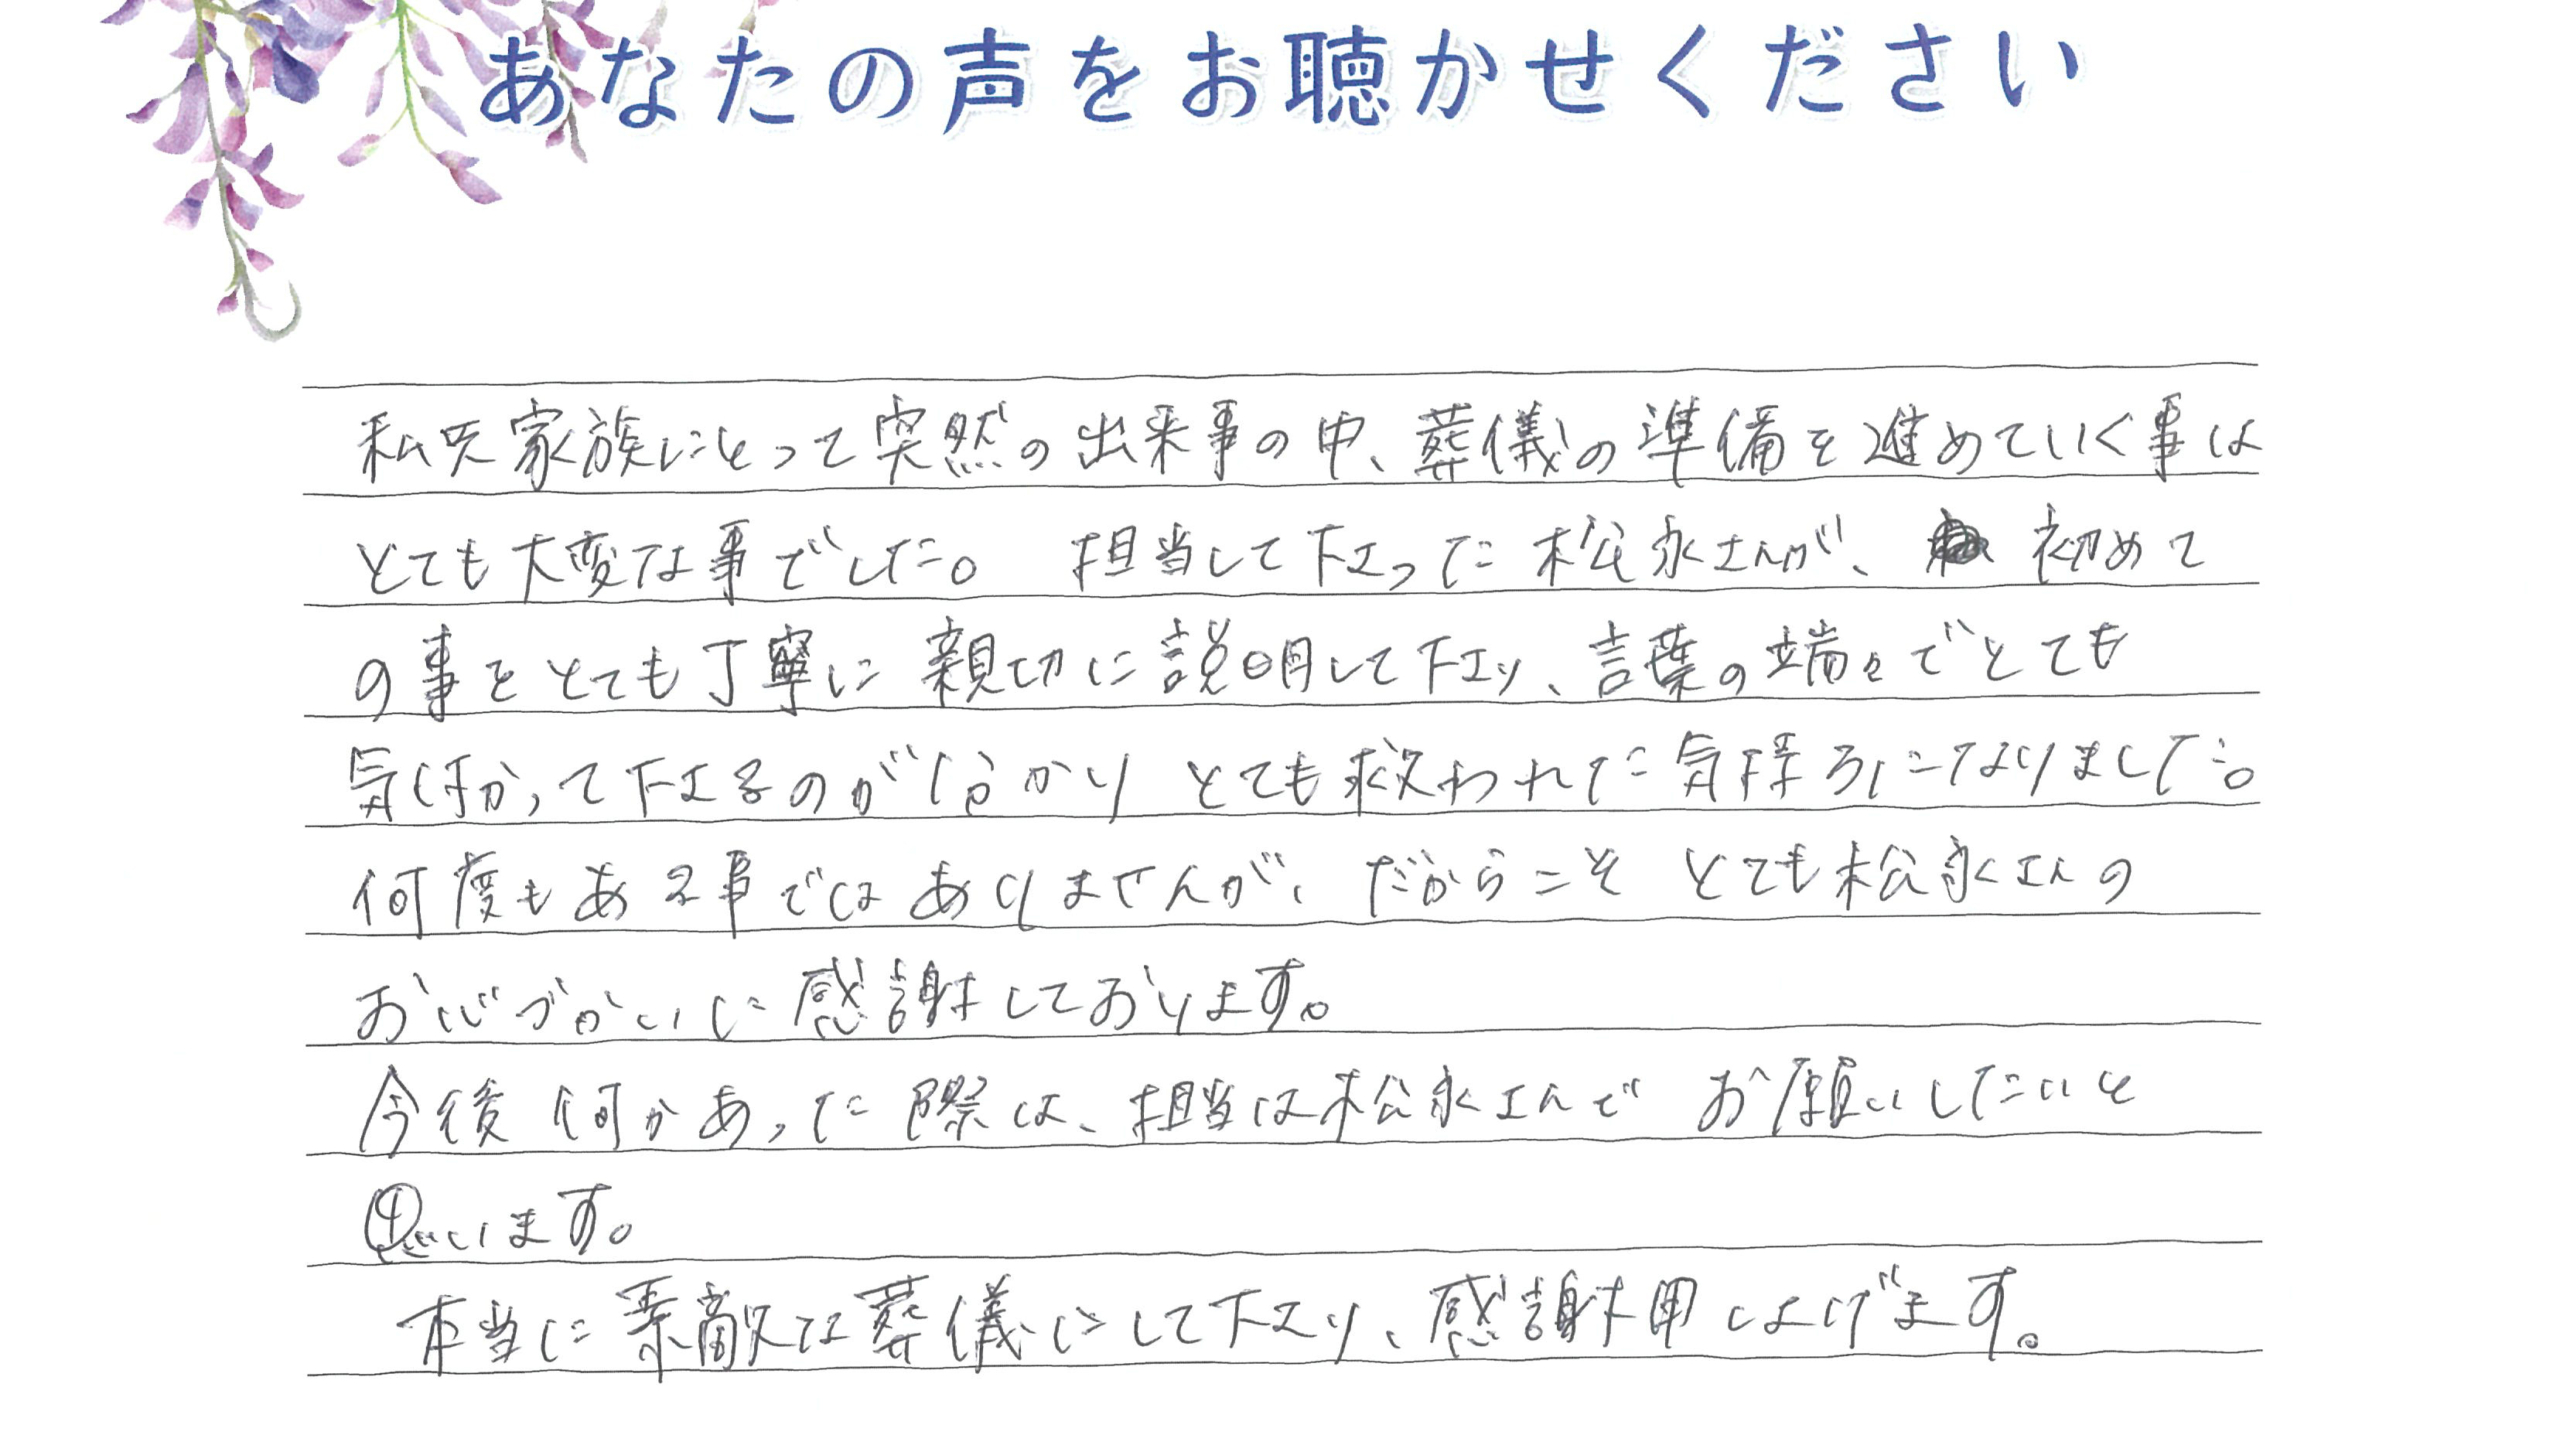 あなたの声をお聴かせください
私共家族にとって突然の出来事の中、葬儀の準備を進めていく事は
とても大変な事でした。 担当して下さった松永さんが、 初めて
の事をとても丁寧に親切に説明して下さり、言葉の端々でとても
気にかって下さるのが分かり とても救われた気持ちになりました。
何度もある事ではありませんが、だからこそ とても松永さんの
お心づかいに感謝しております。
今後 何かあった際は、担当は松永さんで お願いしたいと
思います。
本当に素敵な葬儀にして下さり、感謝申し上げます。